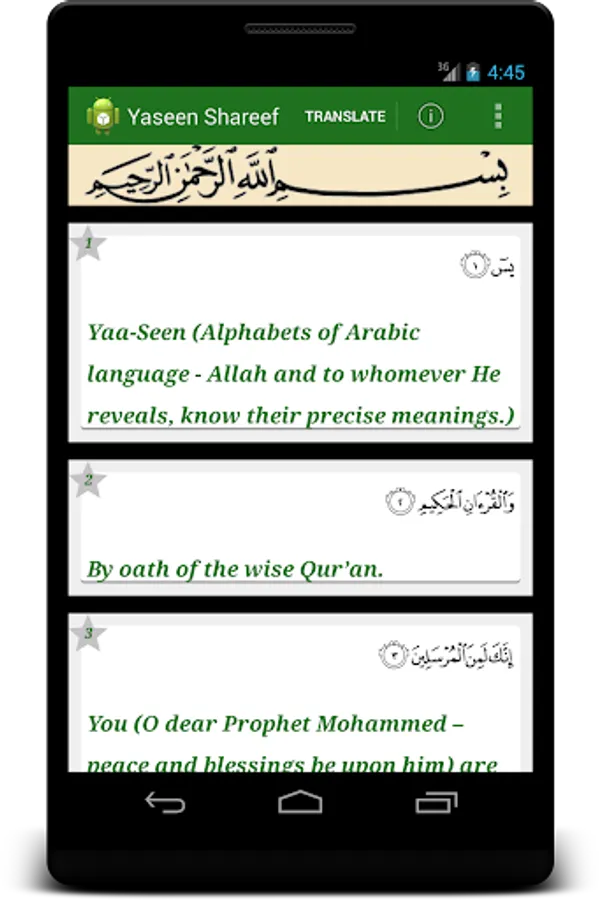 3G 4:45
Yaseen Shareef TRANSLATE i
بِسْمِ ٱللَّهِ ٱلرَّحْمَٰنِ ٱلرَّحِيمِ
1
يسٓ ١
Yaa-Seen (Alphabets of Arabic
language - Allah and to whomever He
reveals, know their precise meanings.)
2
وَٱلْقُرْءَانِ ٱلْحَكِيمِ ٢
By oath of the wise Qur’an.
3
إِنَّكَ لَمِنَ ٱلْمُرْسَلِينَ ٣
You (O dear Prophet Mohammed –
peace and blessings be upon him) are